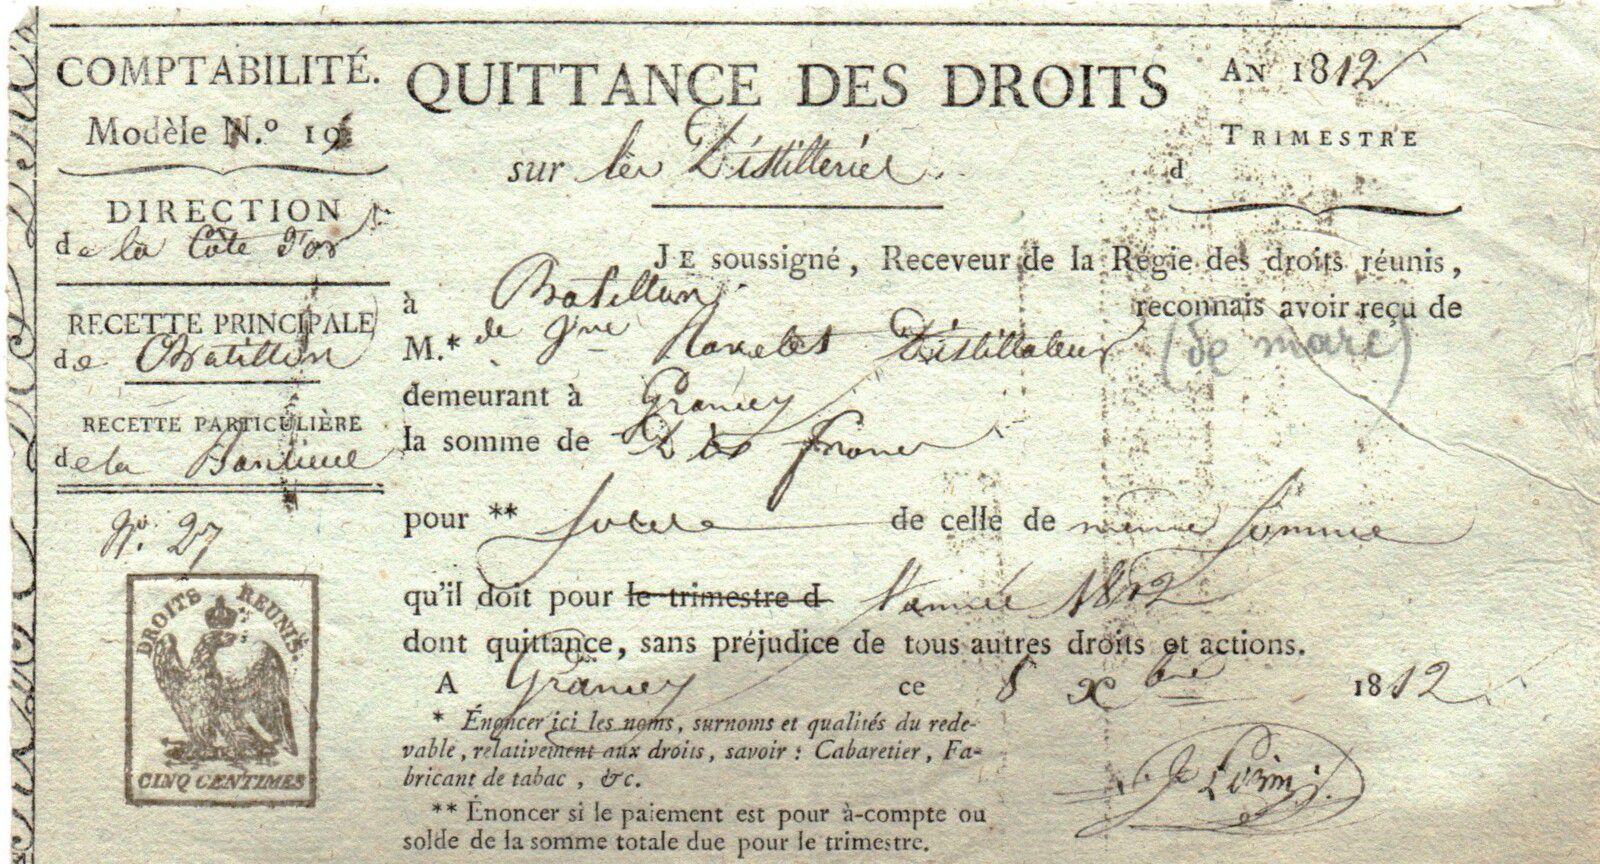 COMPTABILITÉ.
Modèle N.º 19
DIRECTION
de la Côte d'or
RECETTE PRINCIPALE
de Chatillon
RECETTE PARTICULIÈRE
de la Banlieue
Nº. 27
DROITS RÉUNIS.
CINQ CENTIMES
QUITTANCE DES DROITS
sur les Distilleries
AN 1812
TRIMESTRE
d
JE soussigné, Receveur de la Régie des droits réunis,
à Chatillon reconnais avoir reçu de
M.* de Distillateur (de marc)
demeurant à Grancey
la somme de Dix francs
pour ** solde de celle de même somme
qu'il doit pour le trimestre d l'année 1812
dont quittance, sans préjudice de tous autres droits et actions.
A Grancey ce 8 Xbre 1812
* Énoncer ici les noms, surnoms et qualités du rede-
vable, relativement aux droits, savoir : Cabaretier, Fa-
bricant de tabac, &c.
** Énoncer si le paiement est pour à-compte ou
solde de la somme totale due pour le trimestre.